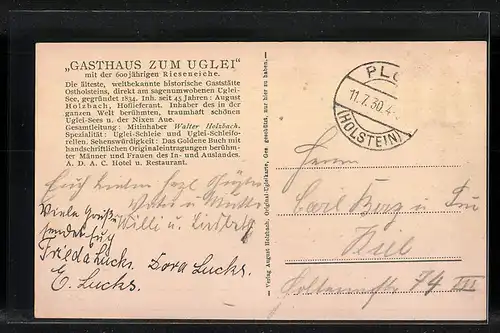 „GASTHAUS ZUM UGLEI"
mit der 600jährigen Rieseneiche.
Die älteste, weltbekannte historische Gaststätte
Ostholsteins, direkt am sagenumwobenen Uglei-
See, gegründet 1834. Inh. seit 45 Jahren: August
Holzbach, Hoflieferant. Inhaber des in der
ganzen Welt berühmten, traumhaft schönen
Uglei-Sees u. der Nixen Aue.
Gesamtleitung: Mitinhaber Walter Holzbach.
Spezialität: Uglei-Schleie und Uglei-Schleifo-
rellen. Sehenswürdigkeit: Das Goldene Buch mit
handschriftlichen Originaleintragungen berühm-
ter Männer und Frauen des In- und Auslandes.
A. D. A. C. Hotel u. Restaurant.
Willi u.
Viele Grüße
sendet Euch
Frieda Lucks. Dora Lucks.
E. Lucks.
— Verlag August Holzbach, Original-Ugleikarte, Ges. geschützt, nur hier zu haben. —
PLÖ
11.7.30.4-
(HOLSTEIN)
Herrn
Carl
Kiel
74 III